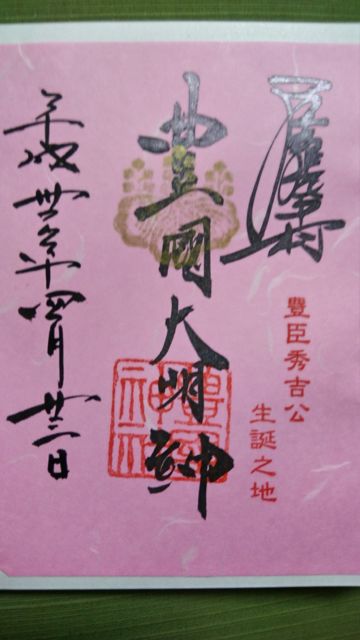 豐臣秀吉公
生誕之地
豊國大明神
豊國
神社
平成廿年四月廿二日